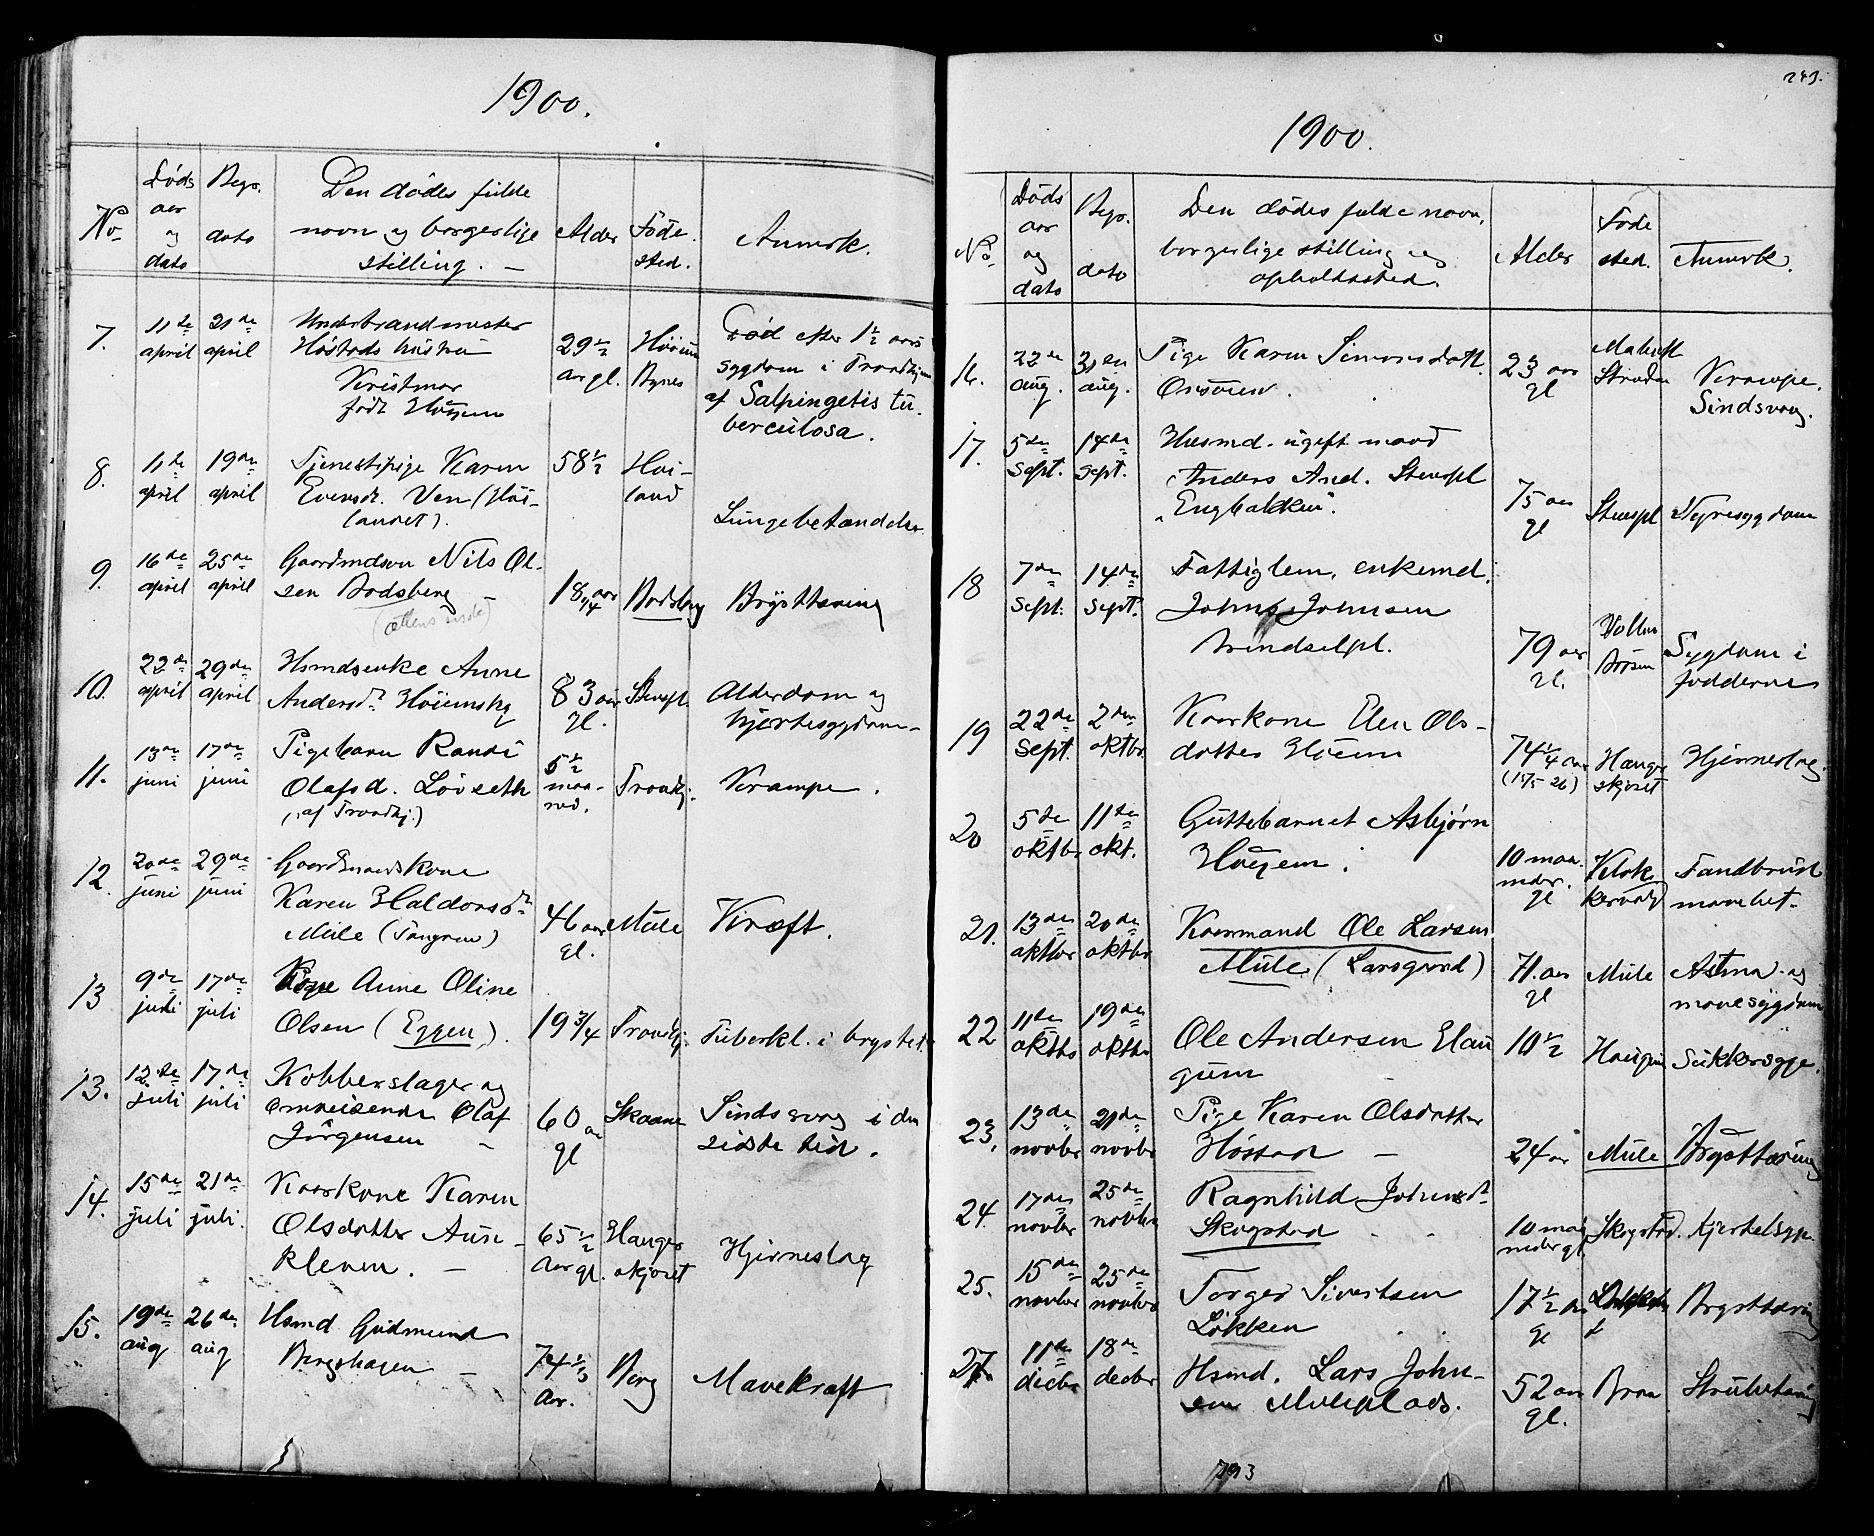 1900.
No.
Döds
aar
og
dato
Begr.
dato
Den dödes fulde
navn og borgerlige
stilling. —
Alder
Föde-
sted.
Anmerk.
7.
11te
april
21de
april
Underbrandmester
Höstads hustru
födt
29 1/2
aar gl.
Bynes
Död efter 1 1/2 aars
sygdom i Trondhjem
af Salpingetis tu-
berculosa.
8.
11te
april
19de
april
Tjenestepige Karen
Evensdt. Ven (Höi-
landet).
58 1/2
Höi-
land
Lungebetændelse
9.
16de
april
25de
april
Gaardmdsön Nils Ol-
sen Bodsberg —
18 3/4 aar
Bodsberg
Brysttæring
10.
22de
april
29de
april
Hsmdsenke Anne
Andersdt. Höiemshg
83 aar
gl.
Stenspl.
Alderdom og
hjertesygdom
11.
13de
juni
17de
juni
Pigebarn Randi
Olafsd. Löiseth
(af Trondhj.)
5 1/2
maa-
ned.
Trondhj.
Krampe.
12.
20de
juni
29de
juni
Gaardmandskone
Karen Haldorsdt.
Mule
46 aar
gl.
Mule
Kræft.
13
9de
juli
17de
juli
Pige Anne Oline
Olsen (Eggen).
19 3/4
Trondhj.
Tuberkl. i brystet.
13.
12te
juli
17de
juli
Kobberslager og
omreisende Olaf
Jörgensen —
60 aar
gl
Skaane
Sindssvag i den
sidste tid.
14.
15de
juli
21de
juli.
Kaarkone Karen
Olsdatter Aun-
kleven. —
65 1/2
aar gl.
Hanger-
skjöret
Hjerneslag
15.
19de
aug
26de
aug
Hsmd Gudmund
Bergshagen —
74 1/3
aar.
Berg
Mavekræft
243.
1900.
No.
Döds
aar
og
dato
Begr.
dato
Den dödes fulde navn,
borgerlige stilling og
opholdssted.
Alder
Föde
sted.
Anmerk.
16.
22de
aug.
30te
aug.
Pige Karen Simonsdatt.
23 aar
gl
Krampe.
Sindssvag.
17.
5te
sept.
14de
sept.
Husmd. ugift mand
Anders And. Stenspl
"Engbakken".
75 aar
gl
Stenspl
Nyresygdom
18
7de
sept.
14de
sept.
Fattiglem, enkemd.
Johns Johnsen
Brendselpl.
79 aar
gl.
Sygdom i
födderne
19
22de
sept.
2den
oktbr
Kaarkone Elen Ols-
datter Höiem
74 1/4 aar
(15/5 26)
Hanger
skjöret
Hjerneslag
20
5te
oktbr
11te
okt.
Guttebarnet Asbjørn
Haugem.
10 maa-
neder.
gl
Tandbrud
21.
13de
oktbr
20de
oktbr
Kaarmand Ole Larsen
Mule (Larsgaard)
71. aar
gl
Mule
Astma og
mavesygdom
22
11te
oktbr
19de
oktbr
Ole Andersen Hau
gum —
10 1/2
Haugum
Sukkersyge.
23.
13de
novbr
21de
novbr
Pige Karen Olsdatter
Höstad —
24 aar
Mule
Brysttæring
24.
17de
novbr
25de
novbr
Ragnhild Johnsdt.
Skogstad
10 maa-
neder gl.
Skogstad.
Kjertelsyge
25.
15de
novbr
25de
novbr
Torger Sivertsen
Lökken
17 1/2 aar
gl
Brysttæring
27
11te
decbr
18de
decbr
Hsmd. Lars John-
sen Muleplads.
52 aar
gl.
Braa
Strubetæring
793